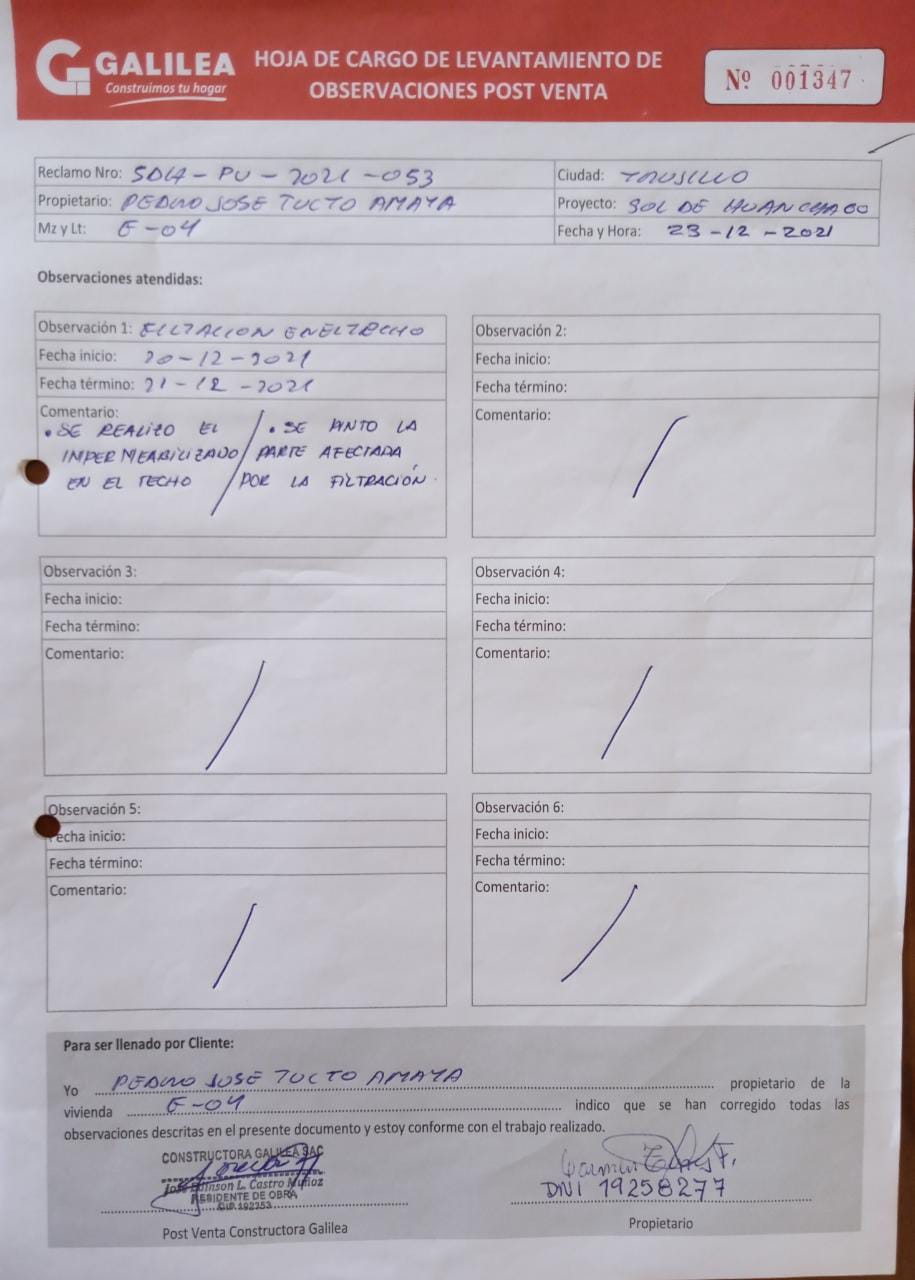 GALILEA
Construimos tu hogar
HOJA DE CARGO DE LEVANTAMIENTO DE
OBSERVACIONES POST VENTA
Nº 001347
Reclamo Nro: SDLH - PV - 2021 - 053
Ciudad: TRUJILLO
Propietario: PEDRO JOSE TUCTO AMAYA
Proyecto: SOL DE HUANCHACO
Mz y Lt: E-04
Fecha y Hora: 23-12-2021
Observaciones atendidas:
Observación 1: FILTACION EN EL TECHO
Fecha inicio: 20-12-2021
Fecha término: 21-12-2021
Comentario:
• SE REALIZO EL
IMPERMEABILIZADO
EN EL TECHO
• SE PINTO LA
PARTE AFECTADA
POR LA FILTRACIÓN.
Observación 2:
Fecha inicio:
Fecha término:
Comentario:
Observación 3:
Fecha inicio:
Fecha término:
Comentario:
Observación 4:
Fecha inicio:
Fecha término:
Comentario:
Observación 5:
Fecha inicio:
Fecha término:
Comentario:
Observación 6:
Fecha inicio:
Fecha término:
Comentario:
Para ser llenado por Cliente:
Yo PEDRO JOSE TUCTO AMAYA propietario de la
vivienda E-04 indico que se han corregido todas las
observaciones descritas en el presente documento y estoy conforme con el trabajo realizado.
CONSTRUCTORA GALILEA SAC
L. Castro Muñoz
RESIDENTE DE OBRA
CIP. 192353
Post Venta Constructora Galilea
Carmen
DNI 19258277
Propietario